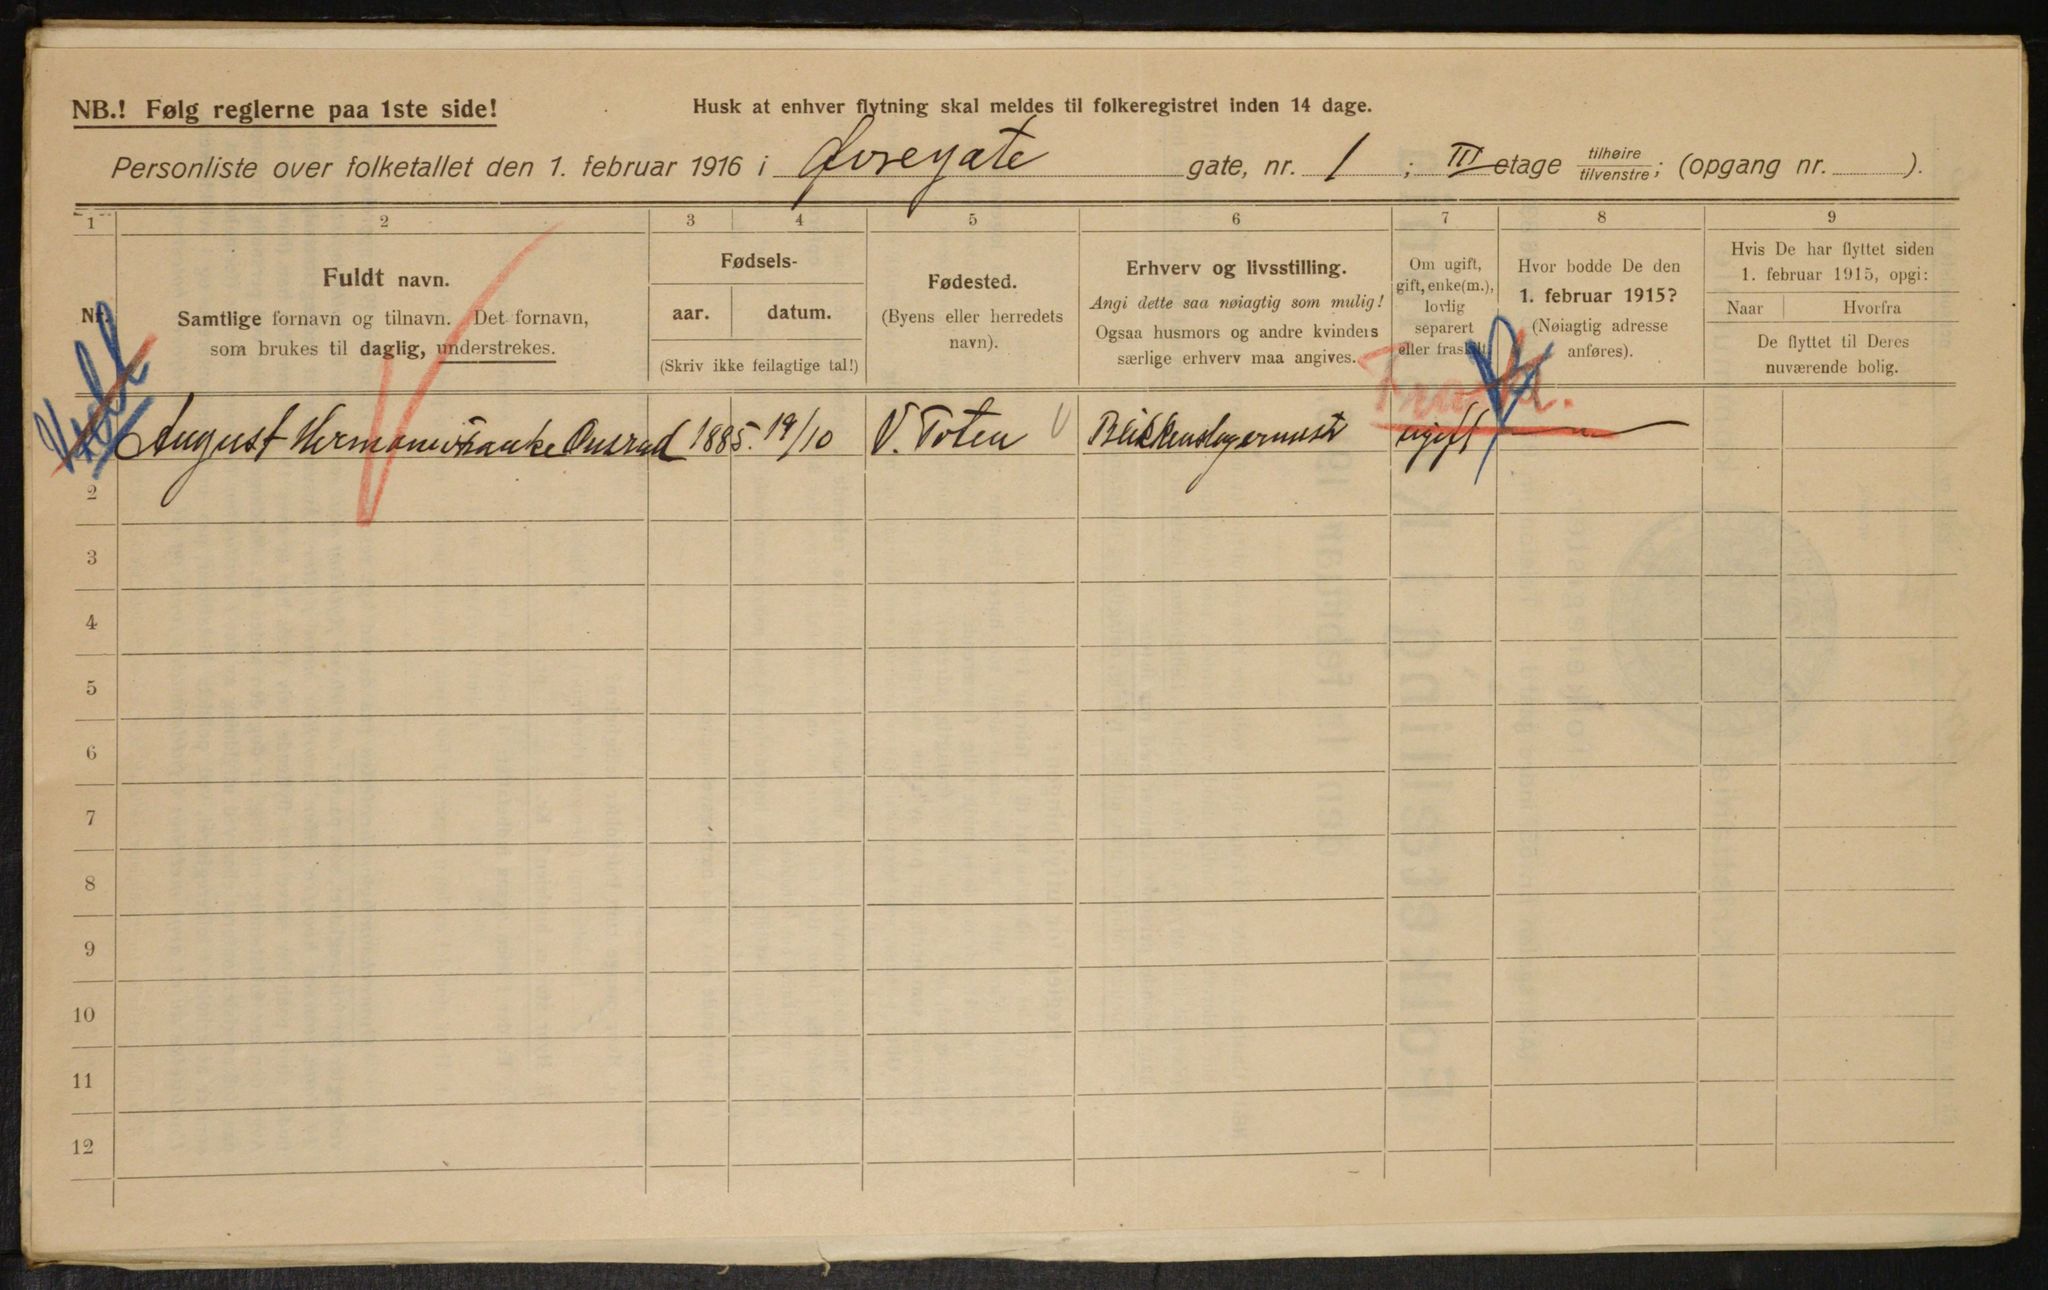 NB.! Følg reglerne paa 1ste side!
Husk at enhver flytning skal meldes til folkeregistret inden 14 dage.
Personliste over folketallet den 1. februar 1916 i gate, nr. 1 ; III etage tilhøire tilvenstre; (opgang nr. ).
1 2 3 4 5 6 7 8 9
Nr.
Fuldt navn.
Samtlige fornavn og tilnavn. Det fornavn,
som brukes til daglig, understrekes.
Fødsels-
aar. datum.
(Skriv ikke feilagtige tal!)
Fødested.
(Byens eller herredets
navn).
Erhverv og livsstilling.
Angi dette saa nøiagtig som mulig!
Ogsaa husmors og andre kvinders
særlige erhverv maa angives.
Om ugift,
gift, enke(m.),
lovlig
separert
eller fraskilt
Hvor bodde De den
1. februar 1915?
(Nøiagtig adresse
anføres).
Hvis De har flyttet siden
1. februar 1915, opgi:
Naar Hvorfra
De flyttet til Deres
nuværende bolig.
August 1885. 19/10 V. Toten Blikkenslagermest ugift
2
3
4
5
6
7
8
9
10
11
12